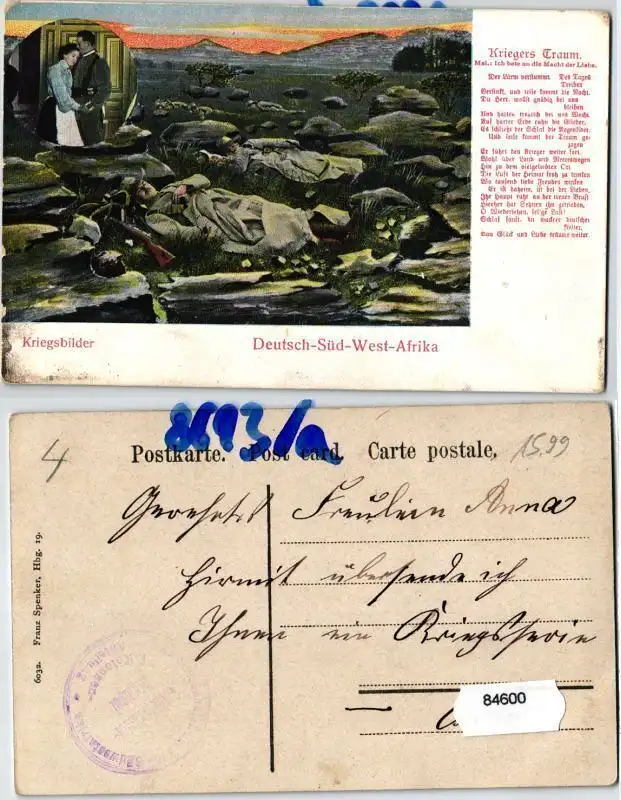 Kriegers Traum.
Mel.: Ich bete an die Macht der Liebe.
Der Lärm verstummt. Des Tages
Treiber
Versinkt, und leise kommt die Nacht.
Du Herr, wollst gnädig bei uns
bleiben
Und halten treulich bei uns Wacht.
Auf harter Erde ruhn die Glieder,
Es schließt der Schlaf die Augenlider.
Und leise kommt der Traum ge-
zogen
Er führt den Krieger weiter fort,
Wohl über Land und Meereswogen
Hin zu dem vielgeliebten Ort.
Die Luft der Heimat froh zu trinken
Wo tausend liebe Freuden winken
Er ist daheim, ist bei der Lieben,
Ihr Haupt ruht an der treuen Brust
Hierher hat Sehnen ihn getrieben,
O Wiedersehen, sel'ge Lust!
Schlaf sanft, du wackrer deutscher
Reiter,
Von Glück und Liebe träume weiter.
Kriegsbilder
Deutsch-Süd-West-Afrika
8693/a
4
Postkarte. Post card. Carte postale.
15.99
Geerhrtes Fräulein Anna
Hirmit übersende ich
Ihnen ein Kriegsserie
84600
6032. Franz Spenker, Hbg. 19.